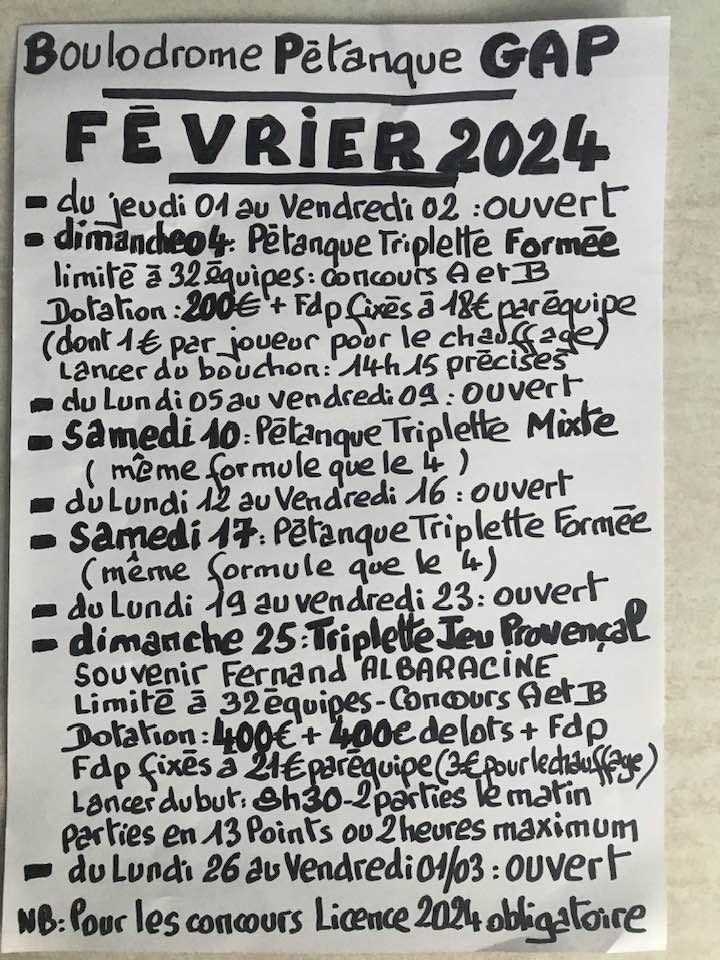 Boulodrome Pétanque GAP
FÉVRIER 2024
- du jeudi 01 au Vendredi 02 : ouvert
- dimanche 04 : Pétanque Triplette Formée
limité à 32 équipes : concours A et B
Dotation : 200€ + Fdp fixés à 18€ par équipe
(dont 1€ par joueur pour le chauffage)
Lancer du bouchon : 14h15 précises
- du Lundi 05 au vendredi 09 : ouvert
- Samedi 10 : Pétanque Triplette Mixte
(même formule que le 4)
- du Lundi 12 au Vendredi 16 : ouvert
- Samedi 17 : Pétanque Triplette Formée
(même formule que le 4)
- du Lundi 19 au vendredi 23 : ouvert
- dimanche 25 : Triplette Jeu Provençal
Souvenir Fernand ALBARACINE
Limité à 32 équipes - Concours A et B
Dotation : 400€ + 400€ de lots + Fdp
Fdp fixés à 21€ par équipe (3€ pour le chauffage)
Lancer du but : 8h30 - 2 parties le matin
parties en 13 Points ou 2 heures maximum
- du Lundi 26 au Vendredi 01/03 : ouvert
NB : Pour les concours Licence 2024 obligatoire